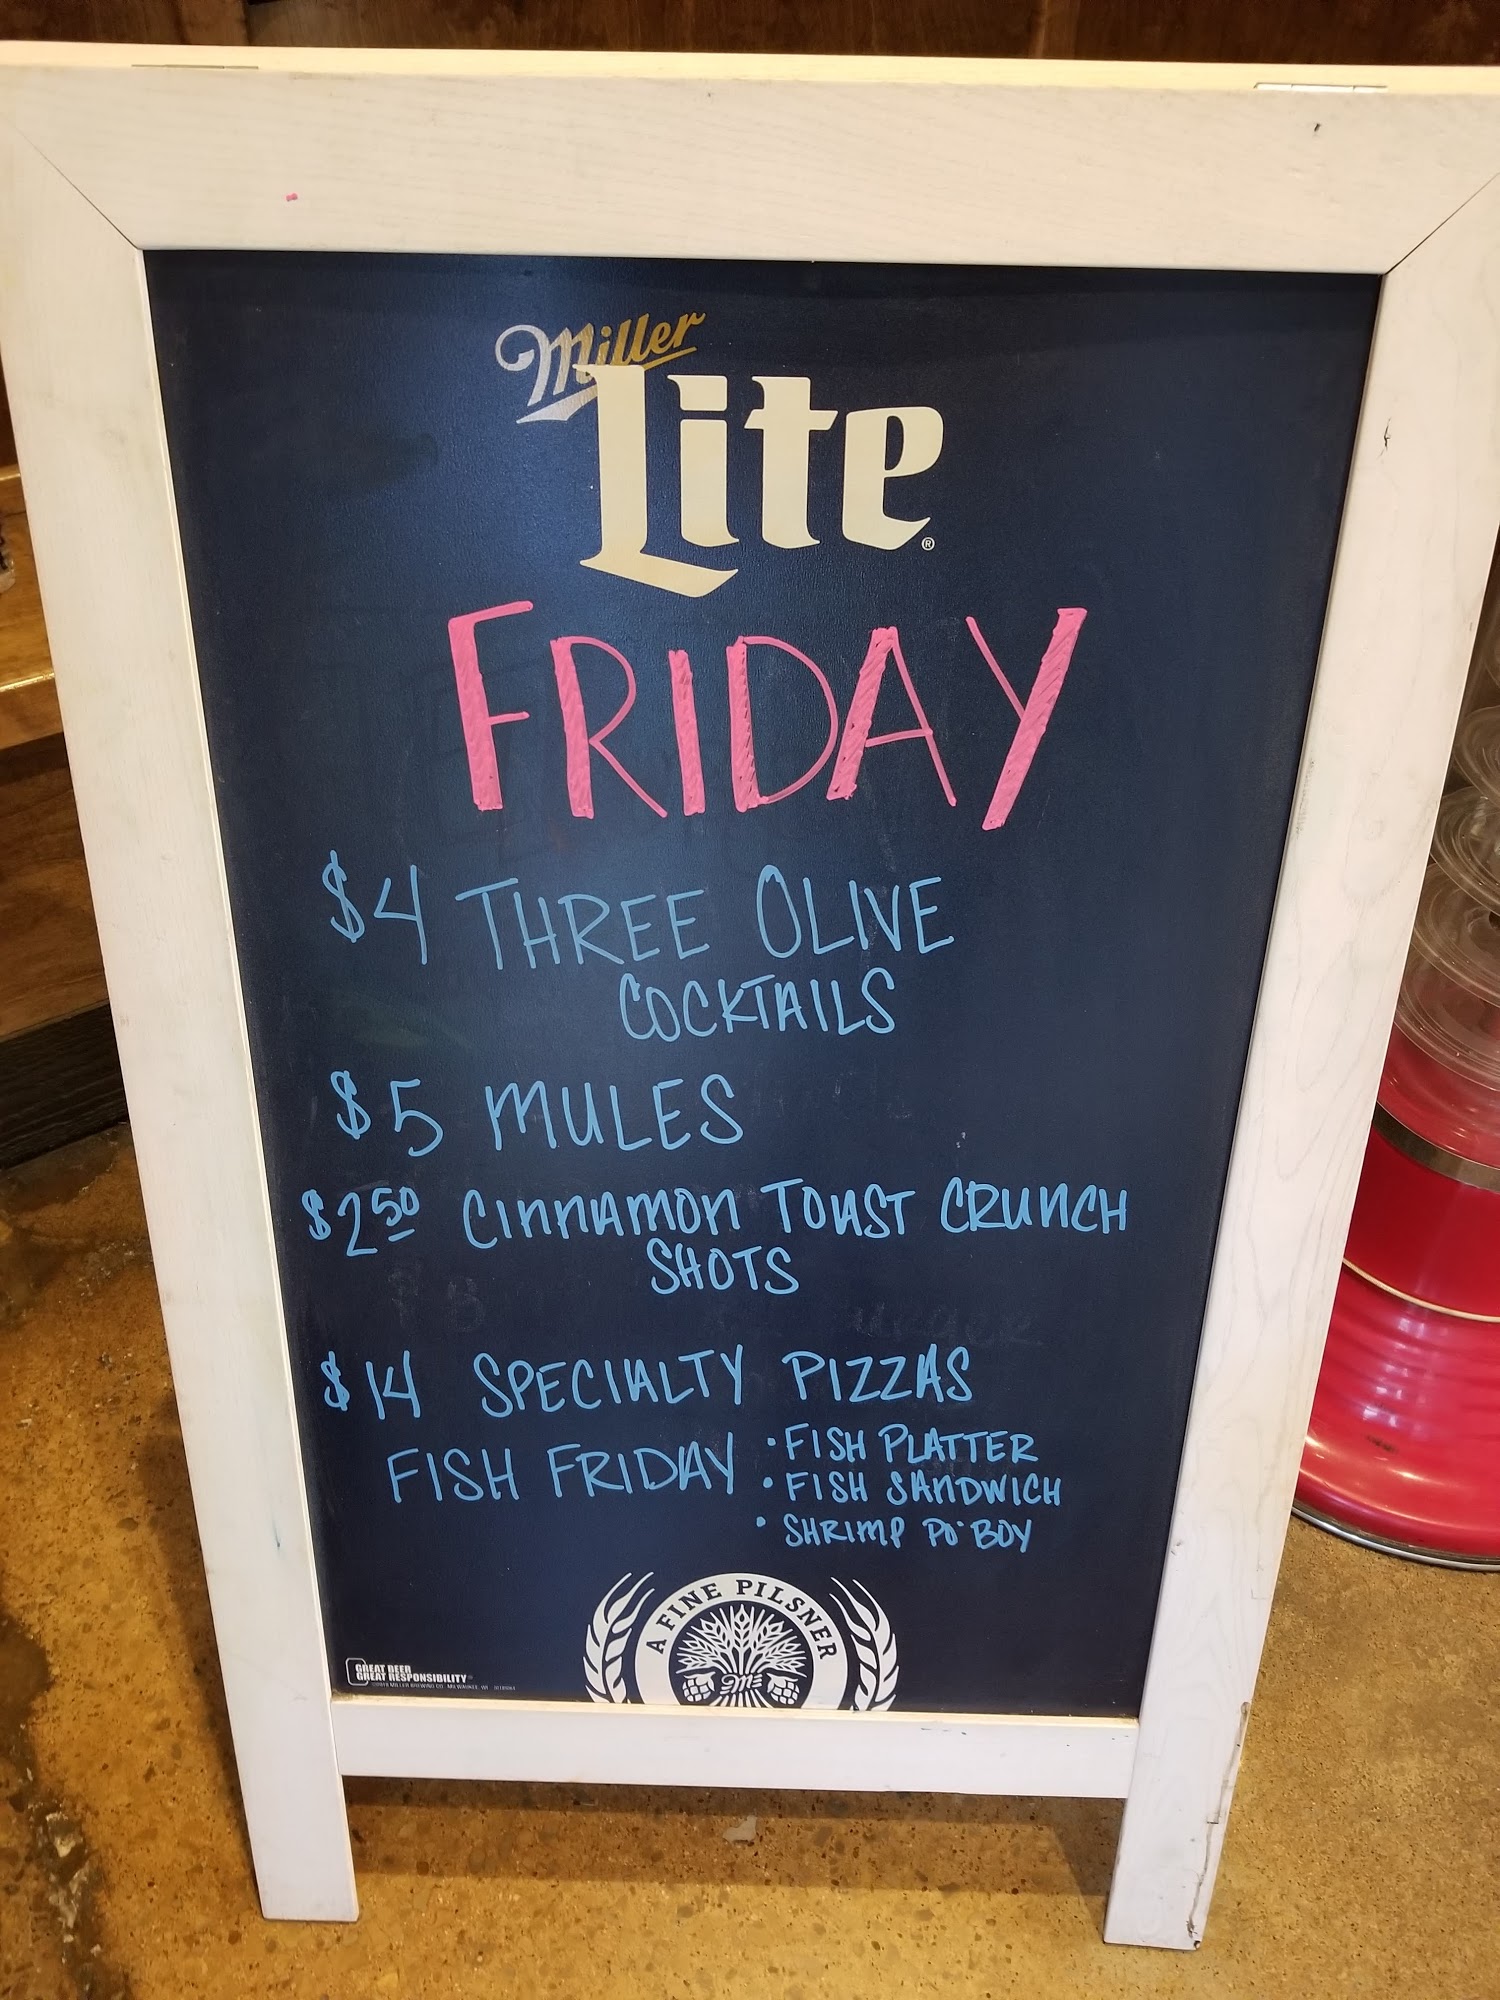 Miller
Lite®
FRIDAY
$4 THREE OLIVE
COCKTAILS
$5 MULES
$2.50 CINNAMON TOAST CRUNCH
SHOTS
$14 SPECIALTY PIZZAS
FISH FRIDAY • FISH PLATTER
• FISH SANDWICH
• SHRIMP PO'BOY
A FINE PILSNER
M
GREAT BEER
GREAT RESPONSIBILITY
MILLER BREWING CO. MILWAUKEE, WI